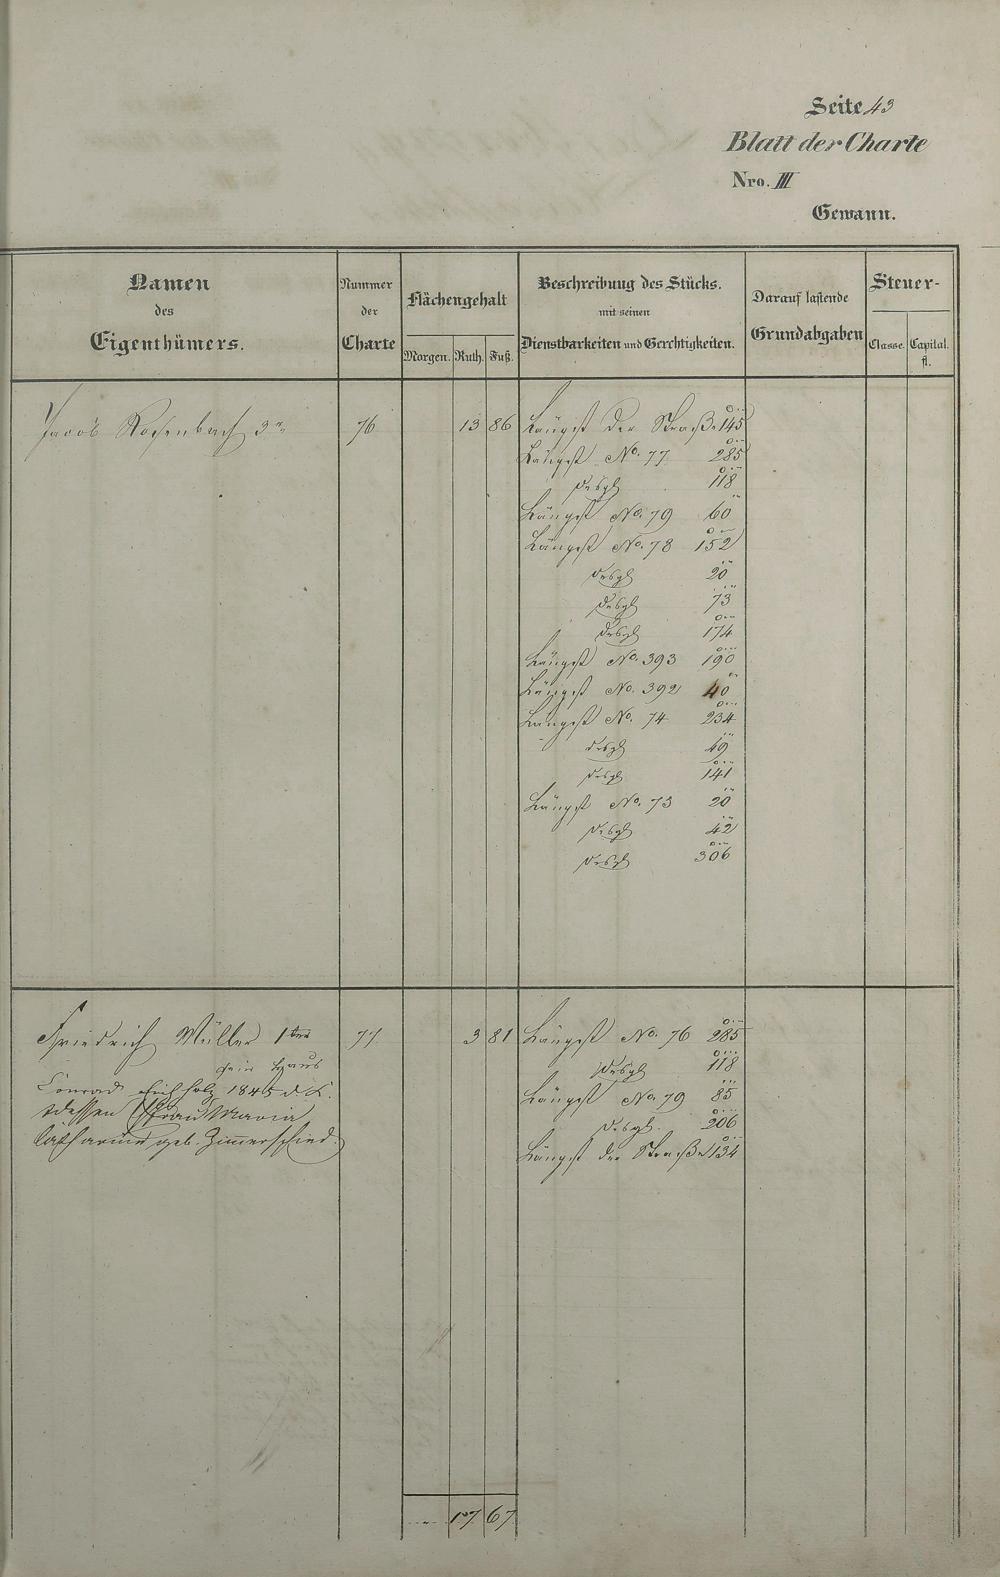 Seite 43
Blatt der Charte
Nro. III
Gewann.
Namen des Eigenthümers.
Nummer der Charte
Flächengehalt
Morgen. Ruth. Fuß.
Beschreibung des Stücks. mit seinen Dienstbarkeiten und Gerechtigkeiten.
Darauf lastende Grundabgaben
Steuer-
Classe. Capital. fl.
Jacob Rosenbach 3r 76 13 86 Längst der Straße 145
Längst No. 77 285
desgl 118
Längst No. 79 60
Längst No. 78 152
desgl 20
desgl 73
desgl 174
Längst No. 393 190
Längst No. 392 40
Längst No. 74 234
desgl 49
desgl 141
Längst No. 73 20
desgl 42
desgl 306
Friedrich Müller 1ter 77 3 81 Längst No. 76 285
sein Haus
desgl 118
Conrad Eichholz 1845 d. K.
Längst No. 79 85
dessen Frau Maria
desgl. 206
Catharine geb. Zimmerschied.
Längst der Straße 134
17 67